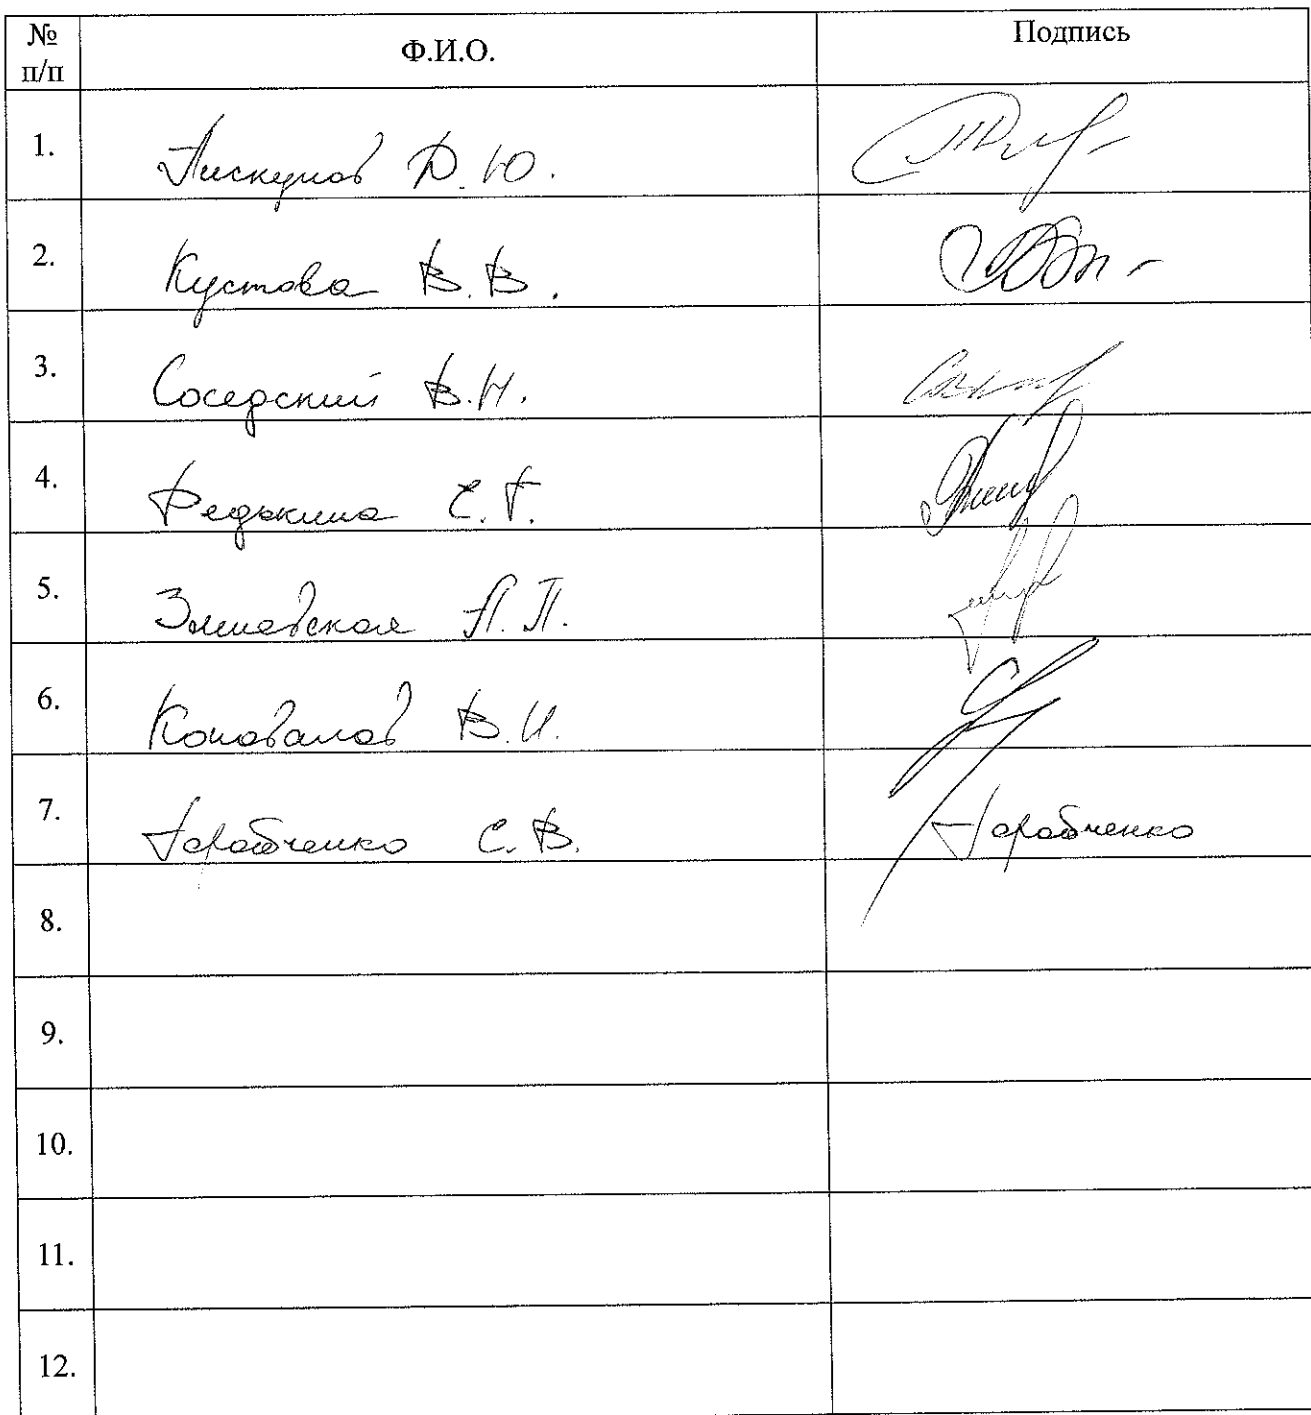 № п/п Ф.И.О. Подпись
1. Пискунов Д.Ю.
2. Кустова В.В.
3. Соседский В.Н.
4. Редькина Е.Г.
5. Змиевская Л.П.
6. Коновалов В.И.
7. Гарабченко С.В. Гарабченко
8.
9.
10.
11.
12.